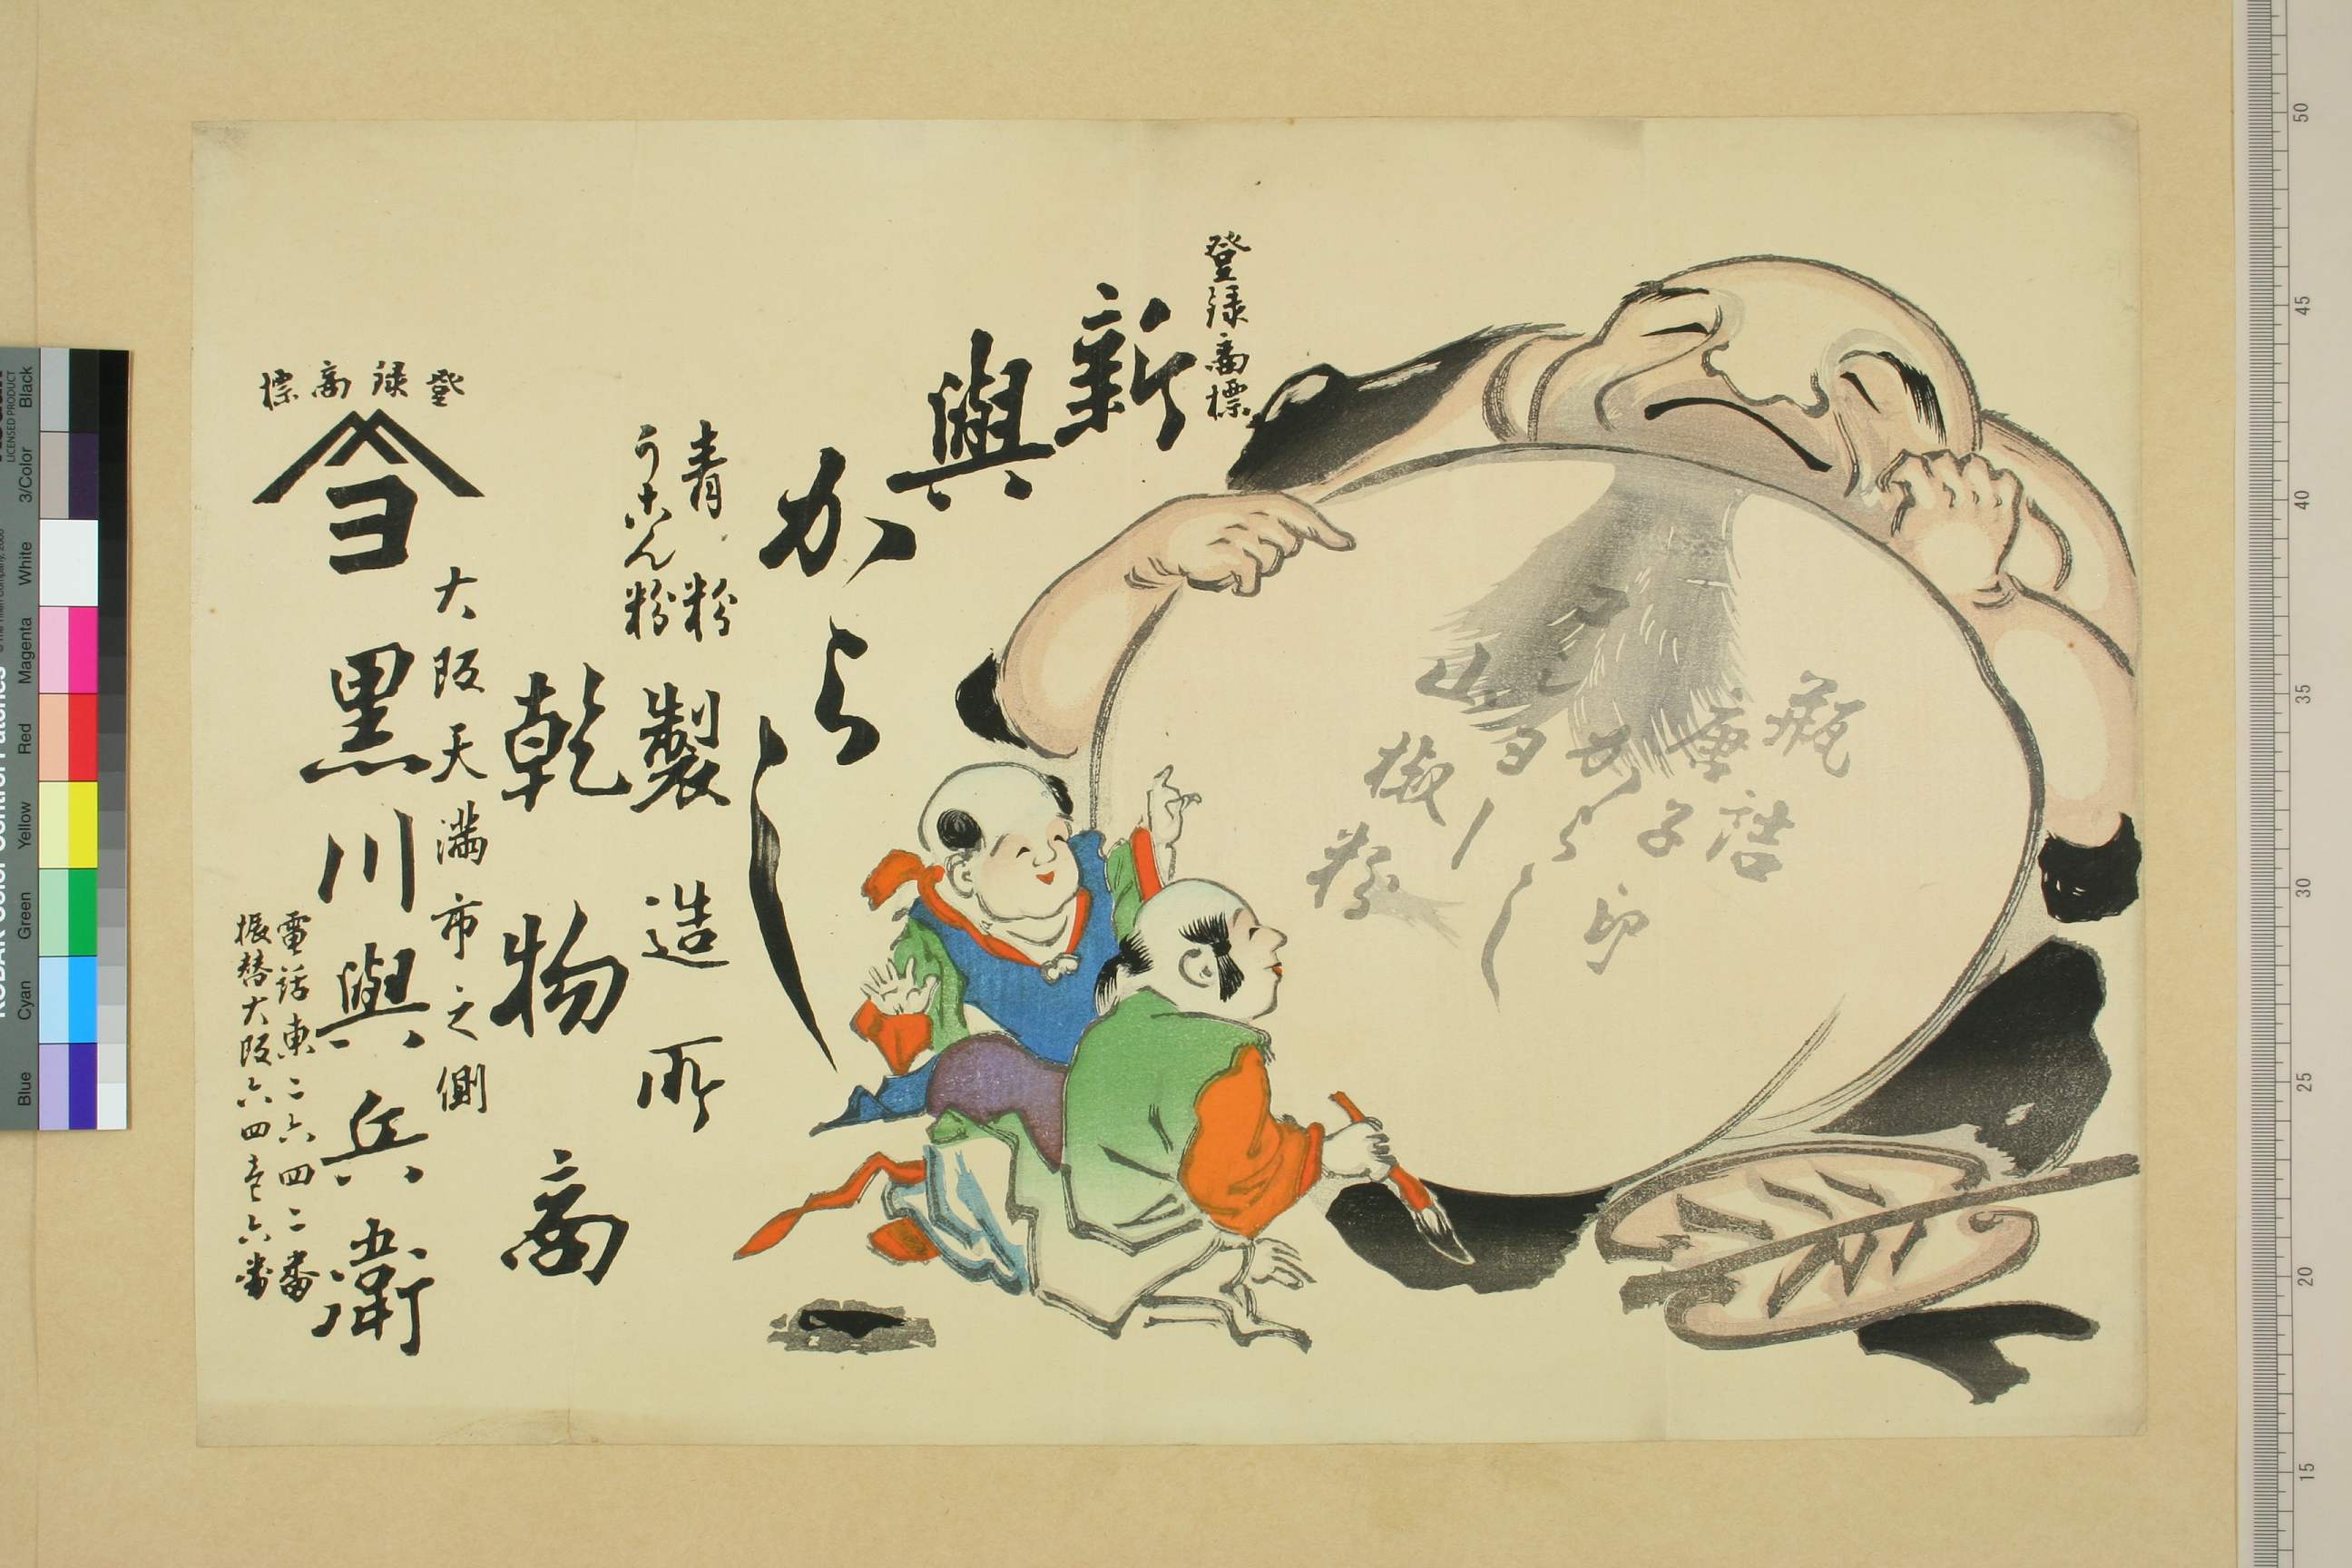 登録商標
新與
からし
青粉
うこん粉
製造所
乾物商
登録商標
ヨ
大阪天満市之側
黒川與兵衛
電話東二六四二番
振替大阪六四壱六番
瓶詰
唐子印
からし
山
椒
粉
50
45
40
35
30
25
20
15
Black
3/Color
White
Magenta
Red
Yellow
Green
Cyan
Blue
LICENSED PRODUCT
KODAK Color Control Patches